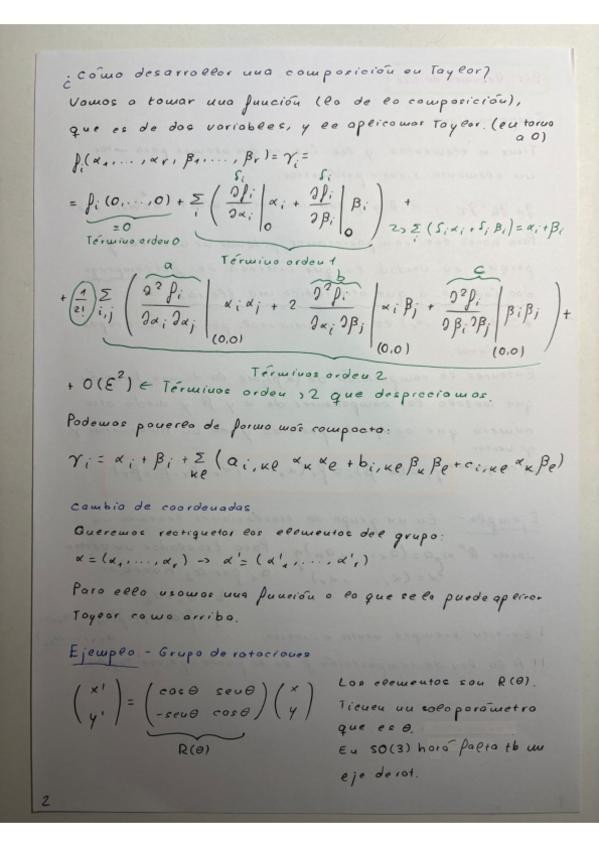 ¿Cómo desarrollar una composición en Taylor?
Vamos a tomar una función (la de la composición),
que es de dos variables, y le aplicamos Taylor. (en torno a 0)
fᵢ(α₁, ..., αᵣ, β₁, ..., βᵣ) = γᵢ =
= fᵢ(0, ..., 0) + Σᵢ (∂fᵢ/∂αᵢ|₀ αᵢ + ∂fᵢ/∂βᵢ|₀ βᵢ) +
δᵢ δᵢ
=0
Término orden 0
Término orden 1
→ Σᵢ (δᵢ αᵢ + δᵢ βᵢ) = αᵢ + βᵢ
a b c
+ 1/2! Σᵢ,ⱼ (∂²fᵢ/∂αᵢ∂αⱼ|(0,0) αᵢ αⱼ + 2 ∂²fᵢ/∂αᵢ∂βⱼ|(0,0) αᵢ βⱼ + ∂²fᵢ/∂βᵢ∂βⱼ|(0,0) βᵢ βⱼ) +
Términos orden 2
+ O(ε²) ← Términos orden >2 que despreciamos.
Podemos ponerlo de forma más compacta:
γᵢ = αᵢ + βᵢ + Σₖₗ (aᵢ,ₖₗ αₖ αₗ + bᵢ,ₖₗ βₖ βₗ + cᵢ,ₖₗ αₖ βₗ)
Cambio de coordenadas
Queremos reetiquetar los elementos del grupo:
α = (α₁, ..., αᵣ) → α' = (α'₁, ..., α'ᵣ)
Para ello usamos una función a la que se le puede aplicar
Taylor como arriba.
Ejemplo - Grupo de rotaciones
(x' y') = (cosθ senθ -senθ cosθ) (x y)
R(θ)
Los elementos son R(θ).
Tienen un solo parámetro
que es θ.
En SO(3) hará falta tb un
eje de rot.
2